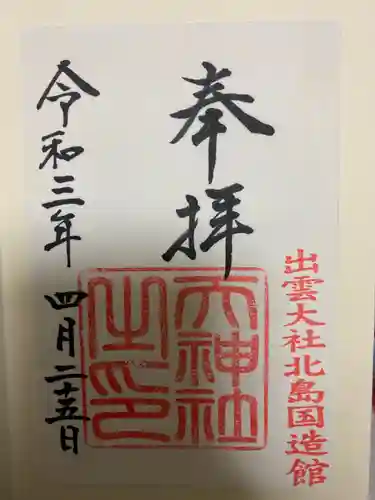 出雲大社北島国造館
奉拝
天神社之印
令和三年四月二十五日